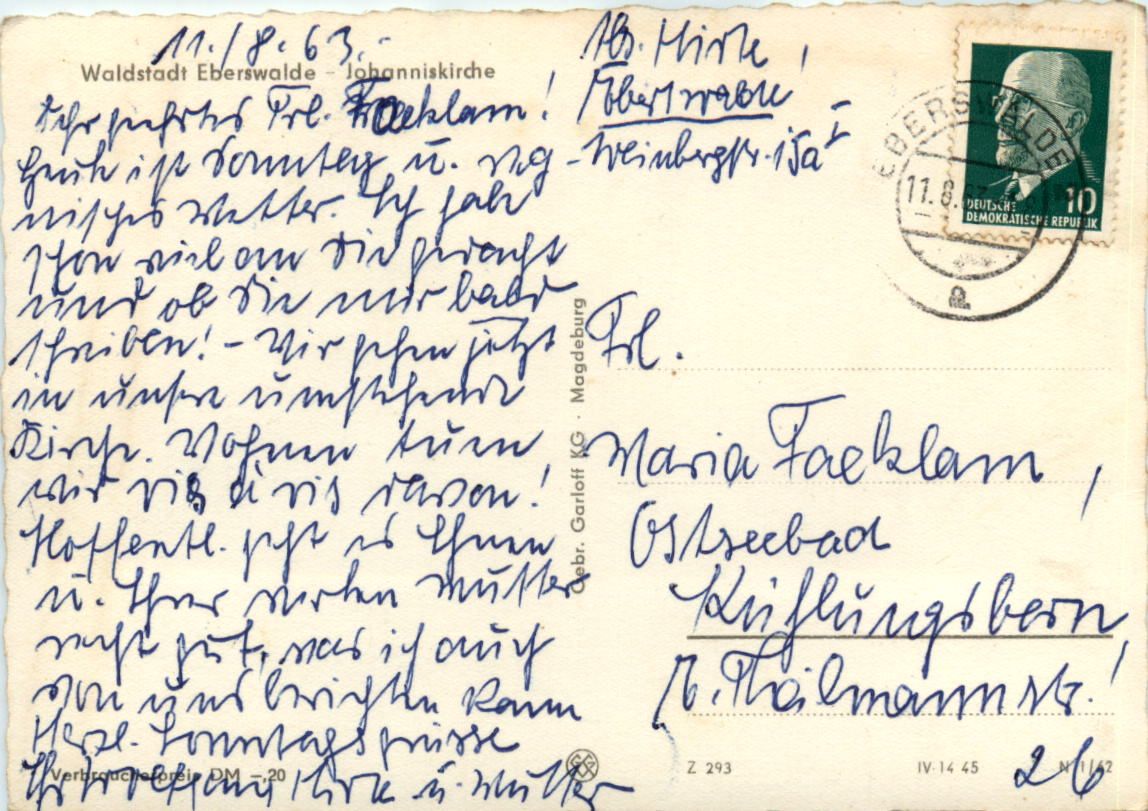 11./8.63.
Waldstadt Eberswalde – Johanniskirche
Sehr geehrtes Frl. Faeklam!
Heute ist Sonntag u. reg-
nisches Wetter. Ich habe
schon viel an Sie gedacht
und ob Sie mir bald
schreiben! – Wir gehen jetzt
in unsere umstehende
Kirche. Wohnen tuen
wir vis à vis davon!
Hoffentl. geht es Ihnen
u. Ihrer werten Mutter
recht gut, was ich auch
von uns berichten kann
Herzl. Sonntagsgrüsse
Ihr Wolfgang Mirk u. Mutter
Verbraucherpreis DM –,20
Abs. Mirk,
Eberswalde
Weinbergstr. 15a I
EBERSWALDE
11.8.63
a
DEUTSCHE
DEMOKRATISCHE REPUBLIK
10
Gebr. Garloff KG · Magdeburg
Frl.
Maria Faeklam,
Ostseebad
Kühlungsborn,
E. Thälmannstr.!
26
Z 293
IV-14 45
N 1/62